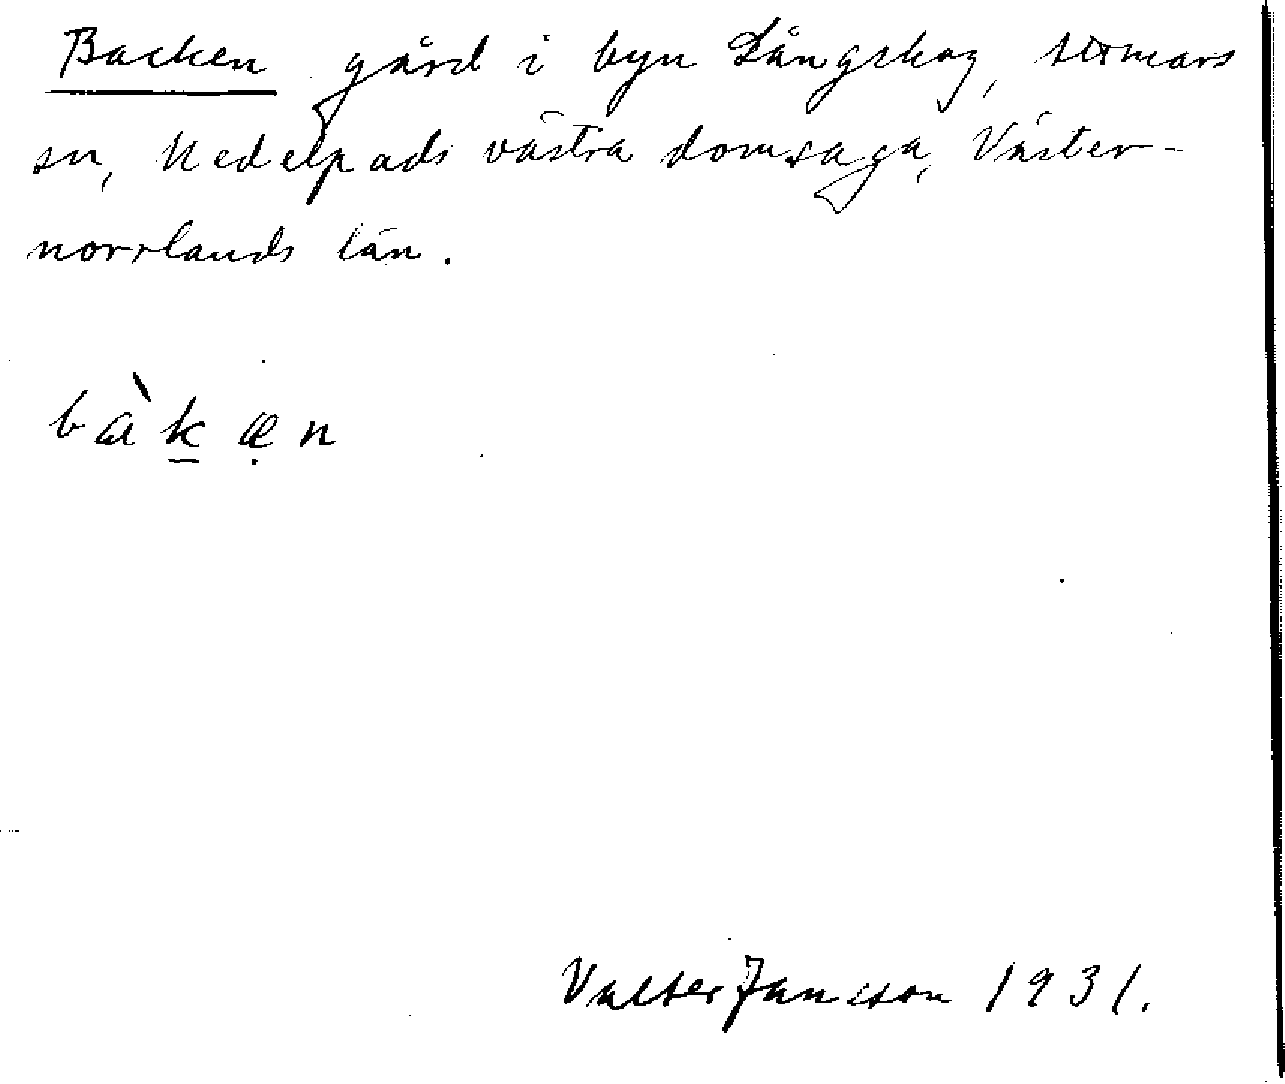 Backen gård i byn Långskog, Stömars
sn, Medelpads västra domsaga, Väster-
norrlands län.
bàk̲æ̣n
Valter Jansson 1931.